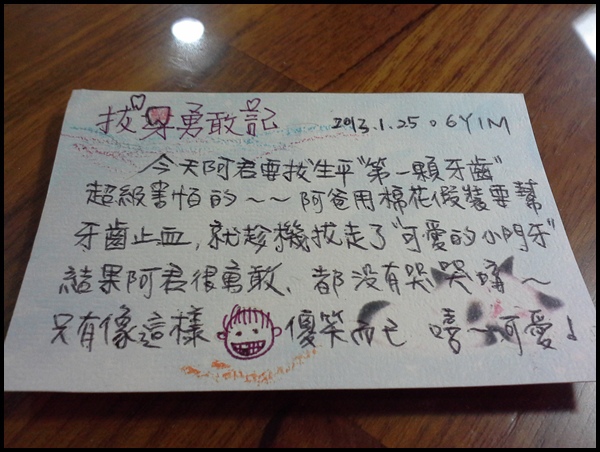 拔牙勇敢記 2013.1.25 。6Y1M
今天阿君要拔"生平"第一顆牙齒"
超級害怕的~~阿爸用棉花假裝要幫
牙齒止血,就趁機拔走了"可愛的小門牙"
結果阿君很勇敢、都沒有哭哭嘯~
只有像這樣 傻笑而已 嘻~可愛♩